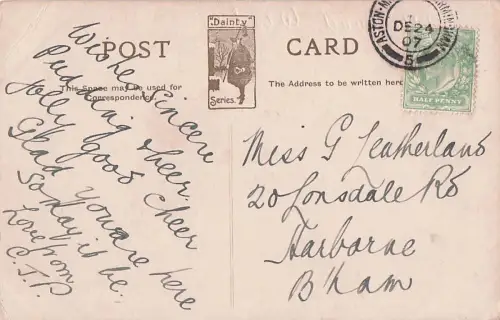 POST CARD
"Dainty"
Series.
This Space may be used for
Correspondence.
The Address to be written here
DE 24
07
5
HALF PENNY
Wishes Sincere
Pudding & beer
Jolly good Cheer
Glad you are here
So may it be.
Love from
C.J.P
Miss G Leatherland
20 Lonsdale Rd
Harborne
B'ham